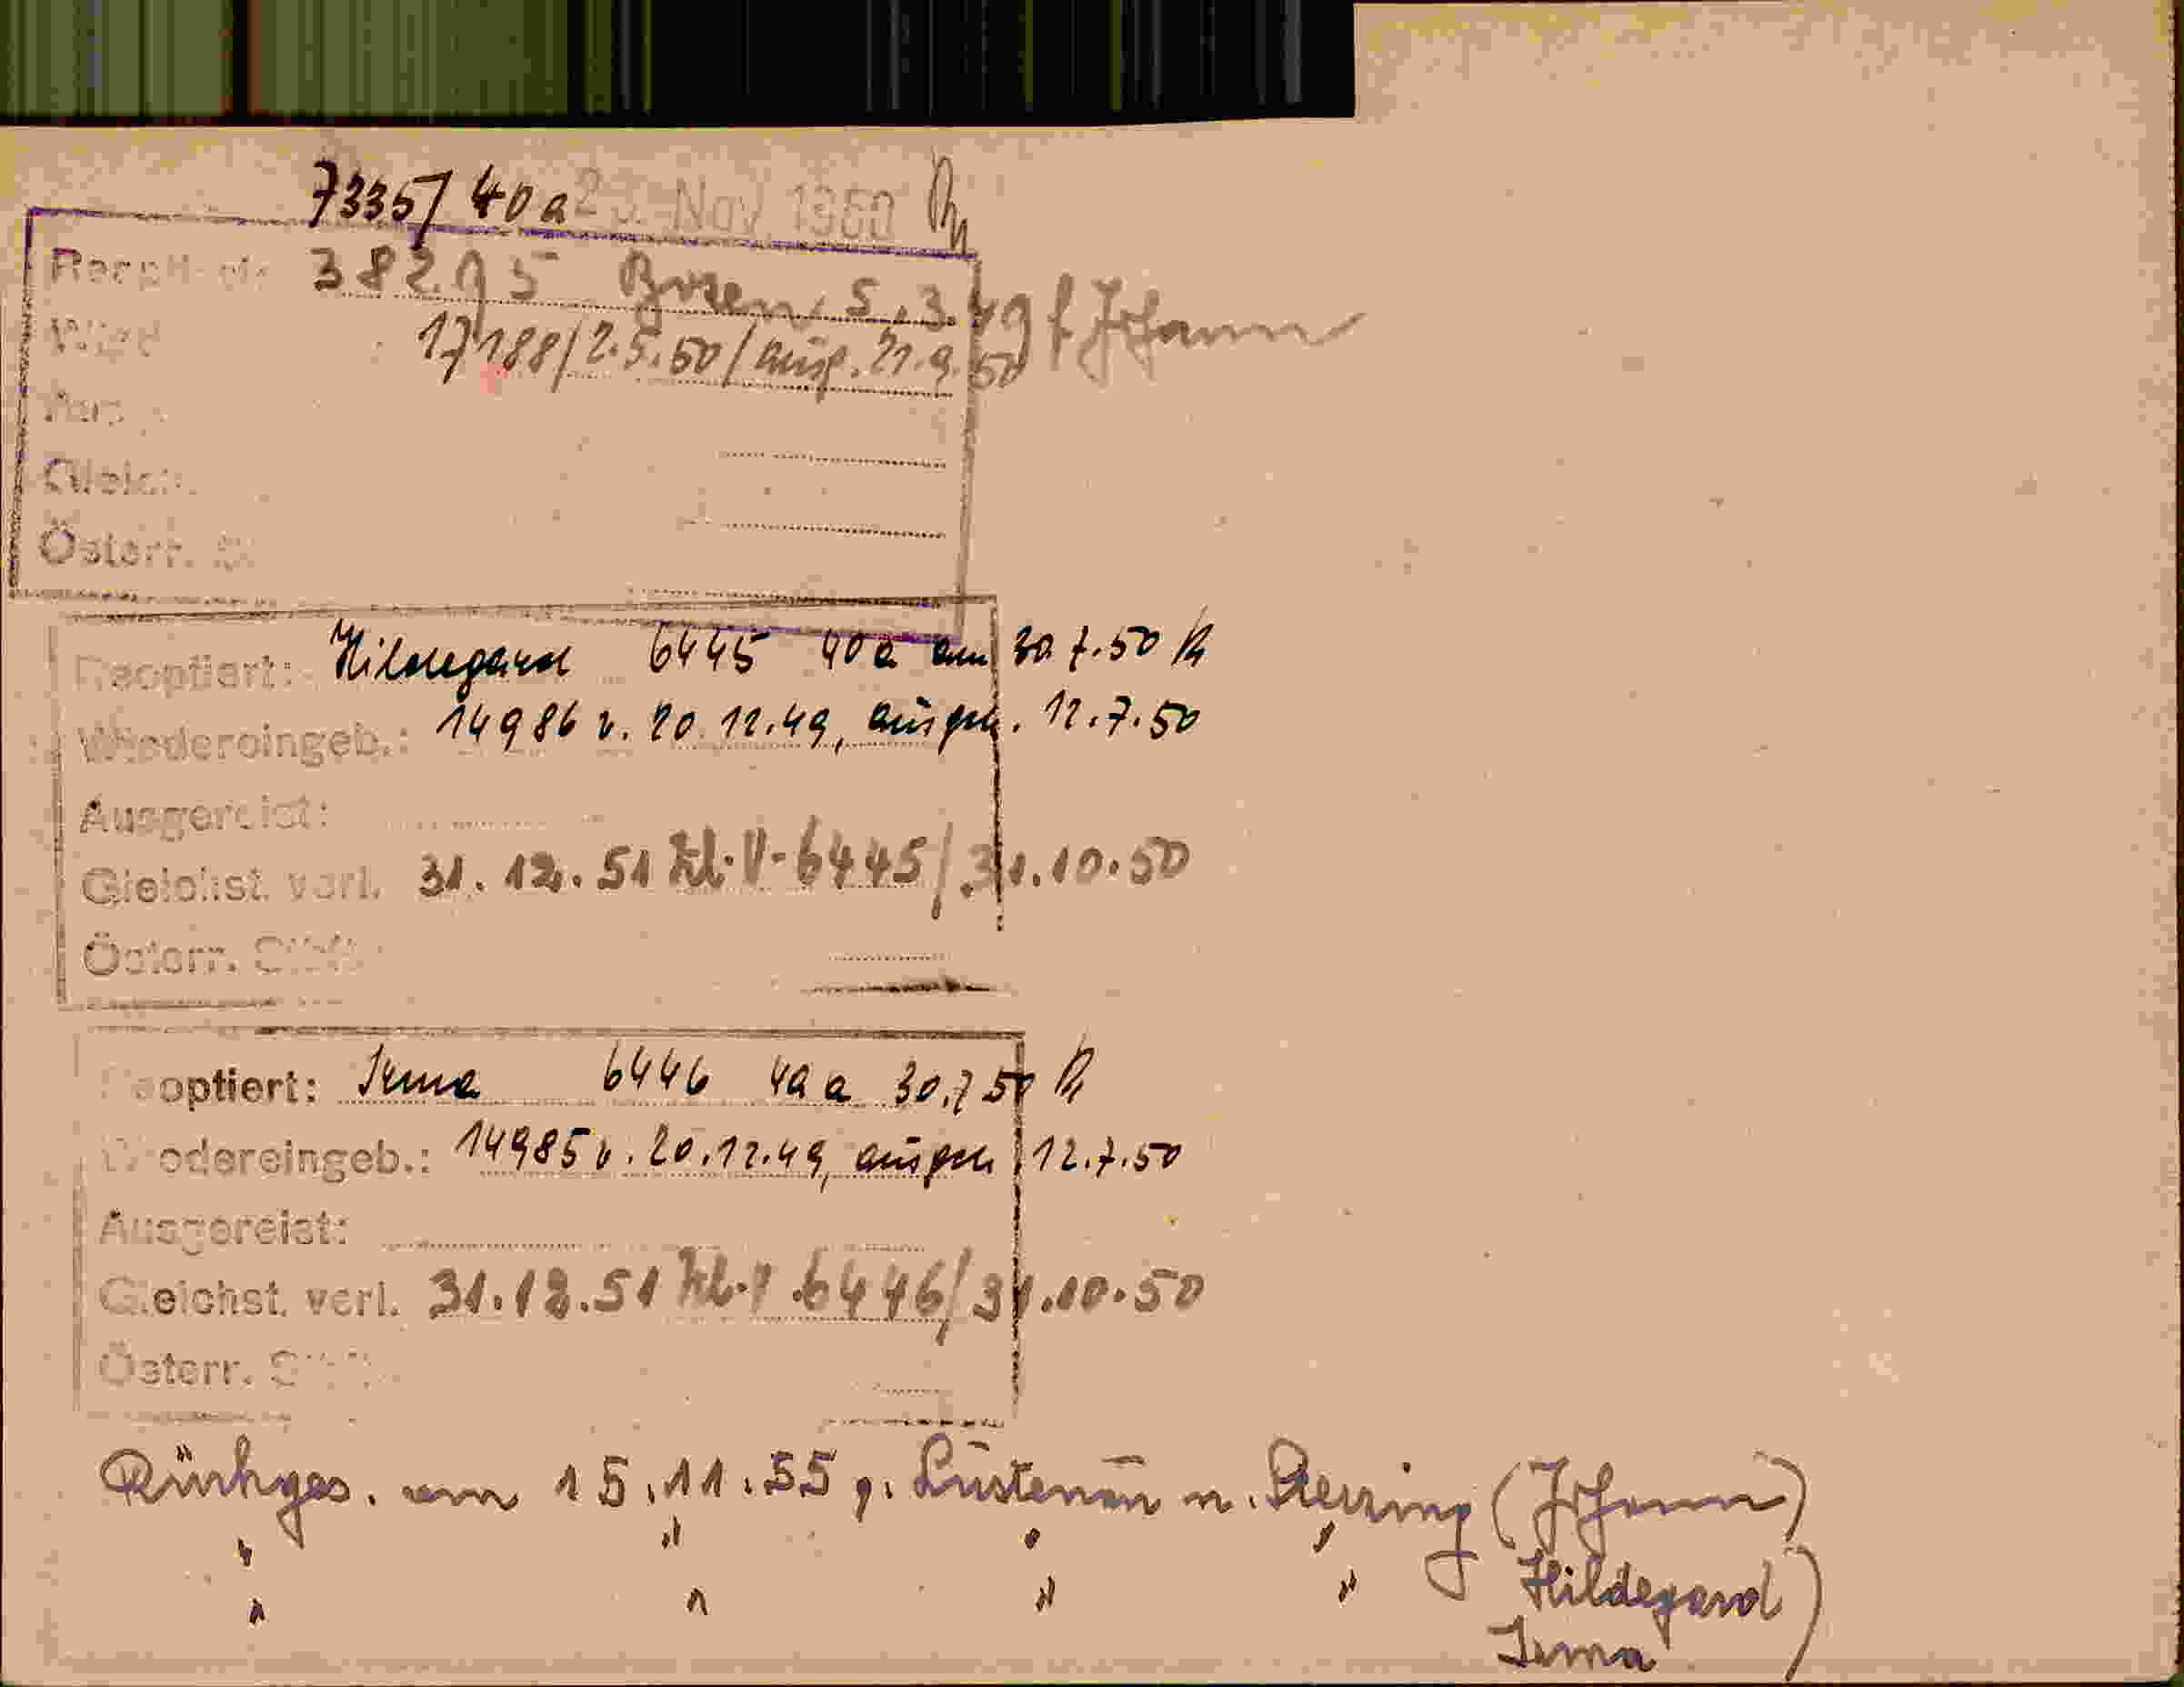 7335/40a 2 . Nov. 1950
38295 Bozen, 5.3.49 f. Johann
17188/2.5.50/ausg. 21.9.50
Österr.
Reoptiert: Hildegard 6445 40a am 30.7.50
Wiedereingeb.: 14986 v. 20.12.49, ausgeh. 12.7.50
Ausgereist:
Gleichst. verl. 31.12.51 Zl. V-6445/31.10.50
Österr.
Reoptiert: Irma 6446 40a 30.7.50
Wiedereingeb.: 14985 v. 20.12.49, ausgeh 12.7.50
Ausgereist:
Gleichst. verl. 31.12.51 Zl. V-6446/31.10.50
Österr.
Rückges. am 15.11.55 g. Lustenau n. (Johann)
" " " " Hildegard)
" " " " Irma